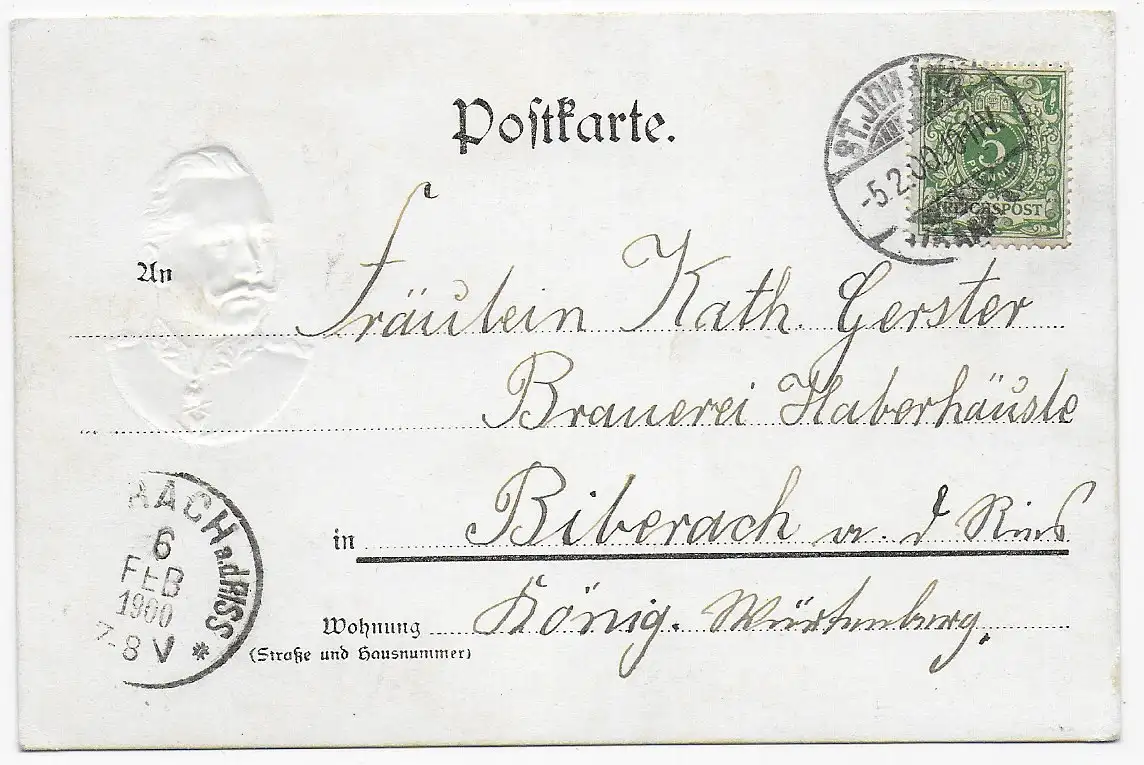 Postkarte.
ST. JOH
-5.2.00.
5
PFENNIG
REICHSPOST
An
Fräulein Kath. Gerster
Brauerei Haberhäusle
in Biberach a. d Riss
Wohnung König. Würtenberg.
(Straße und Hausnummer)
RACH a.d.RISS
6
FEB
1900
7-8 V
*